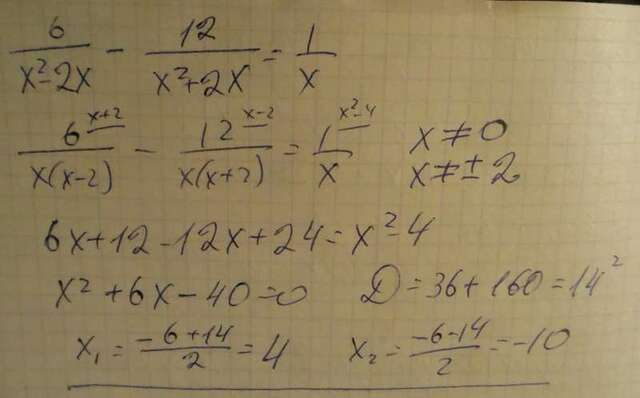 6/(x²-2x) - 12/(x²+2x) = 1/x
6^(x+2)/(x(x-2)) - 12^(x-2)/(x(x+2)) = 1^(x²-4)/x   x≠0
x≠±2
6x+12-12x+24=x²-4
x²+6x-40=0   D=36+160=14²
x₁=(-6+14)/2=4   x₂=(-6-14)/2=-10